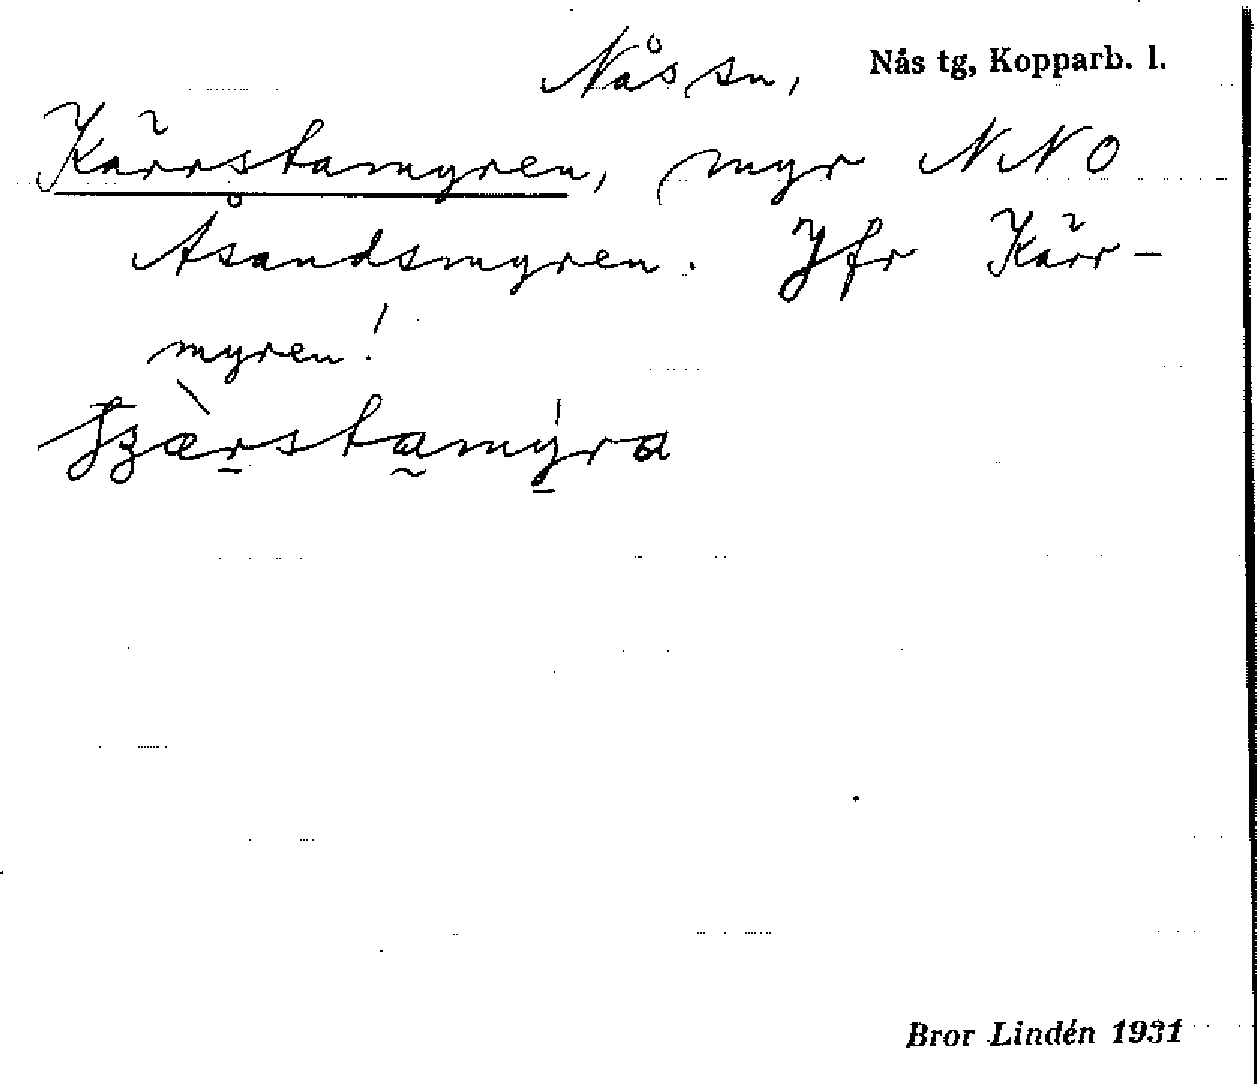 Nås sn, Nås tg, Kopparb. l.
Kärrstamyren, myr NNO
Åsandsmyren. Jfr Kärr-
myren!
Bror Lindén 1931